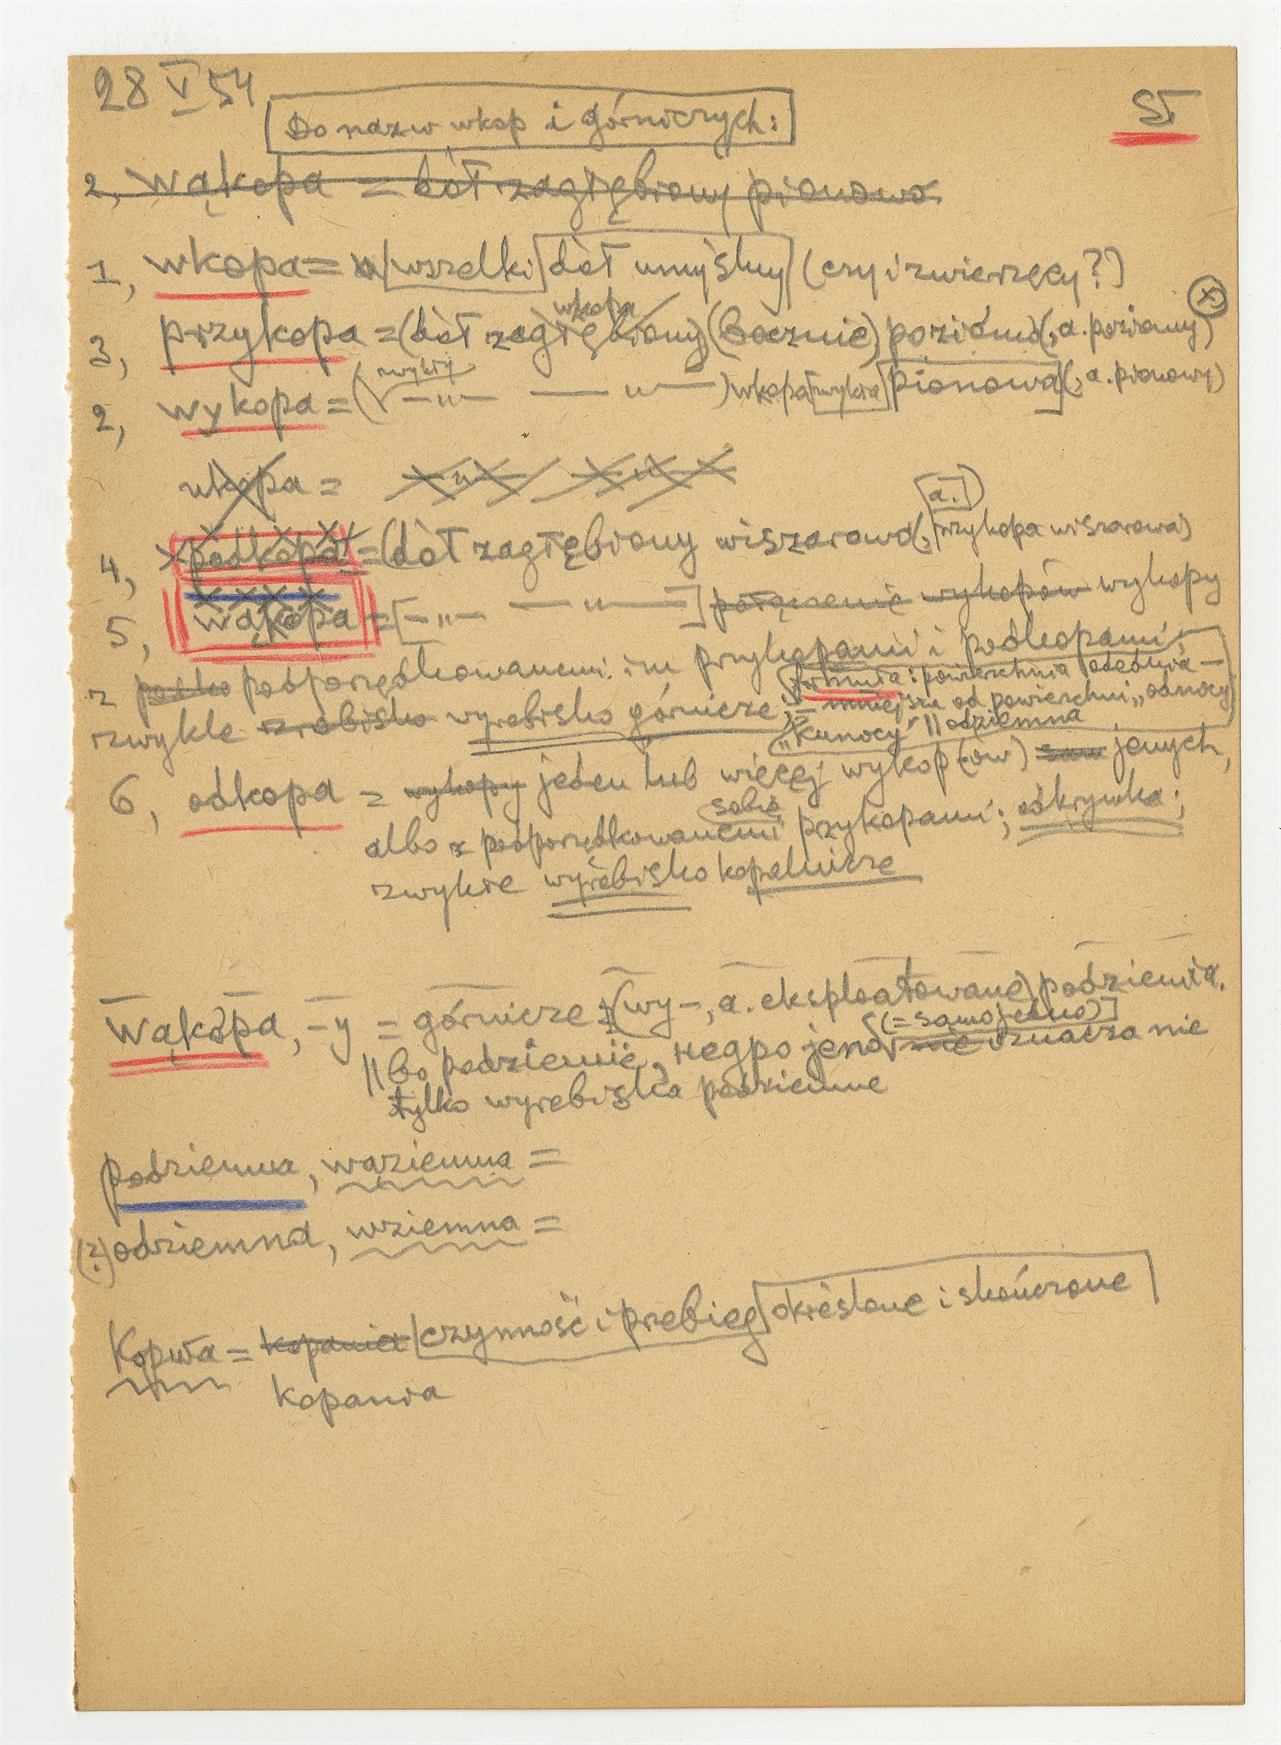 28 V 54
Do nazw wkop i górniczych:
2, wąkopa = dół zagłębiony pionowo
1, wkopa = wszelki dół umyślny (czy i zwierzęcy?)
wkopa
3, przykopa = (dół zagłębiony) (bocznie) pozioma (, a. poziomy)
zwykły
2, wykopa = ( —„— —„—) wkopa zwykła pionowa (, a. pionowy)
ukopa = —„— —„—
a.
4, podkopa = (dół zagłębiony wiszarowo (, przykopa wiszarowa)
5, wąkopa = [—„— —„—] połączenie wykopów wykopy
z podko podporządkowanemi im przykopami i podkopami
zwykle zrobisko wyrobisko górnicze;
mniejsza od powierzchni „odnocy
„kunocy" || odziemna
6, odkopa = wykopy jeden lub więcej wykop(ów) jenych,
sobie
albo z podporządkowanemi przykopami; odkrywka;
zwykłe wyrobisko kopalnicze
Wąkopa, -y = górnicze (wy-, a. eksploatowane) podziemia,
(= samojedno)
|| bo podziemie, negpo jeno nie oznacza nie
tylko wyrobiska podziemne
podziemna, wąziemna =
(?) odziemna, wziemna =
Kopwa = kopania czynność i przebieg określone i skończone
kopania